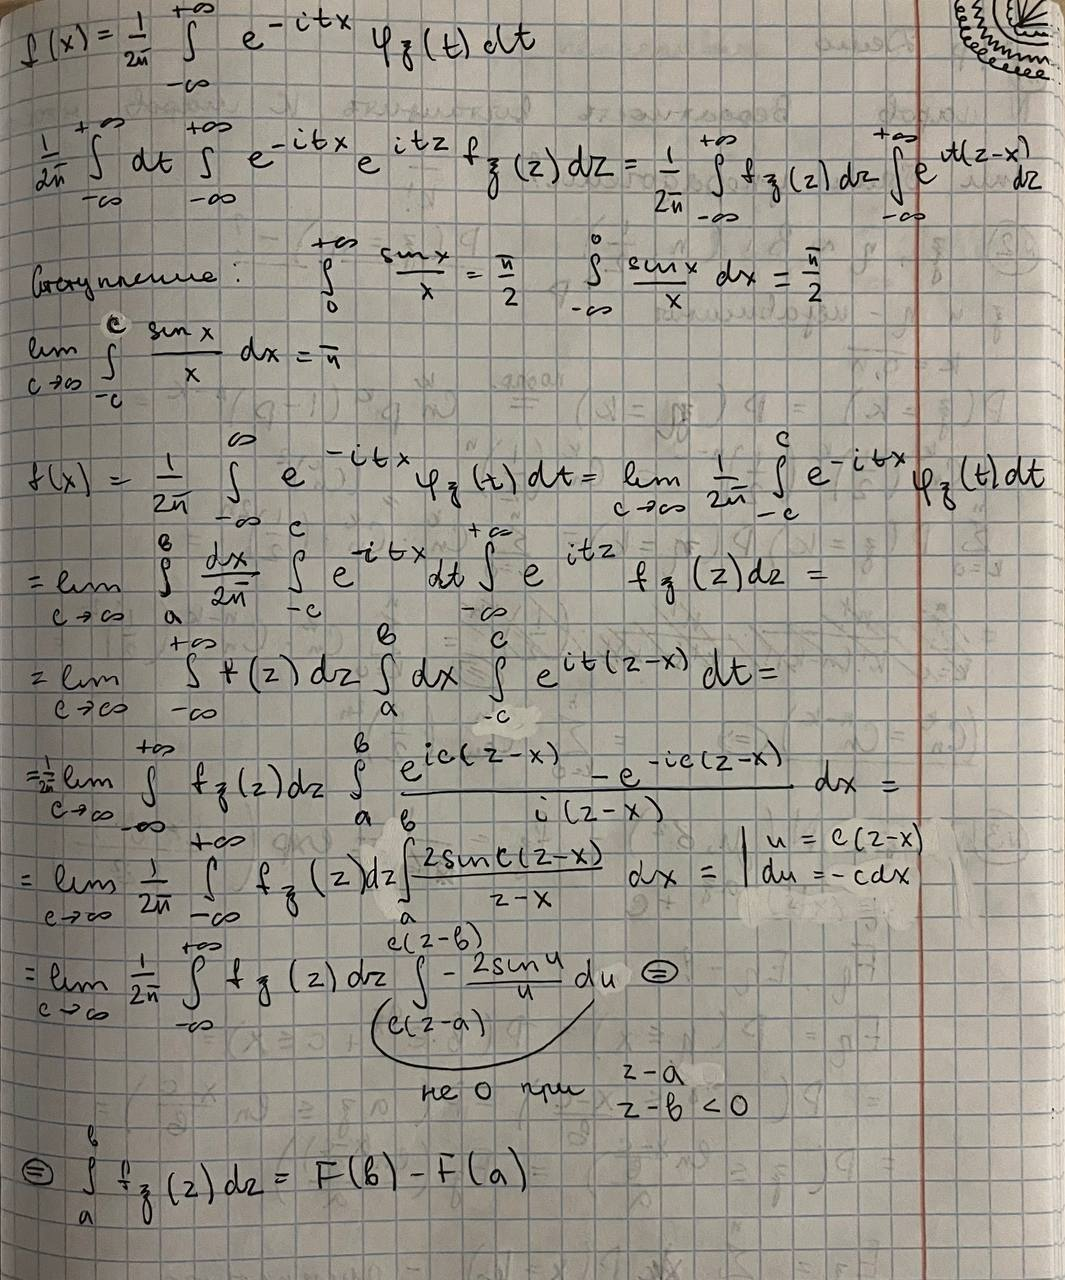 f(x) = 1/2π ∫_{-∞}^{+∞} e^{-itx} φ_ξ(t) dt
1/2π ∫_{-∞}^{+∞} dt ∫_{-∞}^{+∞} e^{-itx} e^{itz} f_ξ(z) dz = 1/2π ∫_{-∞}^{+∞} f_ξ(z) dz ∫_{-∞}^{+∞} e^{it(z-x)} dz
Отступление: ∫_0^{+∞} sin x / x = π/2 ∫_{-∞}^0 sin x / x dx = π/2
lim_{c→∞} ∫_{-c}^{c} sin x / x dx = π
f(x) = 1/2π ∫_{-∞}^{∞} e^{-itx} φ_ξ(t) dt = lim_{c→∞} 1/2π ∫_{-c}^{c} e^{-itx} φ_ξ(t) dt
= lim_{c→∞} ∫_a^b dx/2π ∫_{-c}^{c} e^{-itx} dt ∫_{-∞}^{+∞} e^{itz} f_ξ(z) dz =
= lim_{c→∞} ∫_{-∞}^{+∞} f(z) dz ∫_a^b dx ∫_{-c}^{c} e^{it(z-x)} dt =
= 1/2π lim_{c→∞} ∫_{-∞}^{+∞} f_ξ(z) dz ∫_a^b (e^{ic(z-x)} - e^{-ic(z-x)}) / i(z-x) dx =
= lim_{c→∞} 1/2π ∫_{-∞}^{+∞} f_ξ(z) dz ∫_a^b 2 sin c(z-x) / (z-x) dx = | u = c(z-x) du = -c dx
= lim_{c→∞} 1/2π ∫_{-∞}^{+∞} f_ξ(z) dz ∫_{c(z-a)}^{c(z-b)} - 2 sin u / u du ⊜
не 0 при z-a
z-b < 0
⊜ ∫_a^b f_ξ(z) dz = F(b) - F(a)